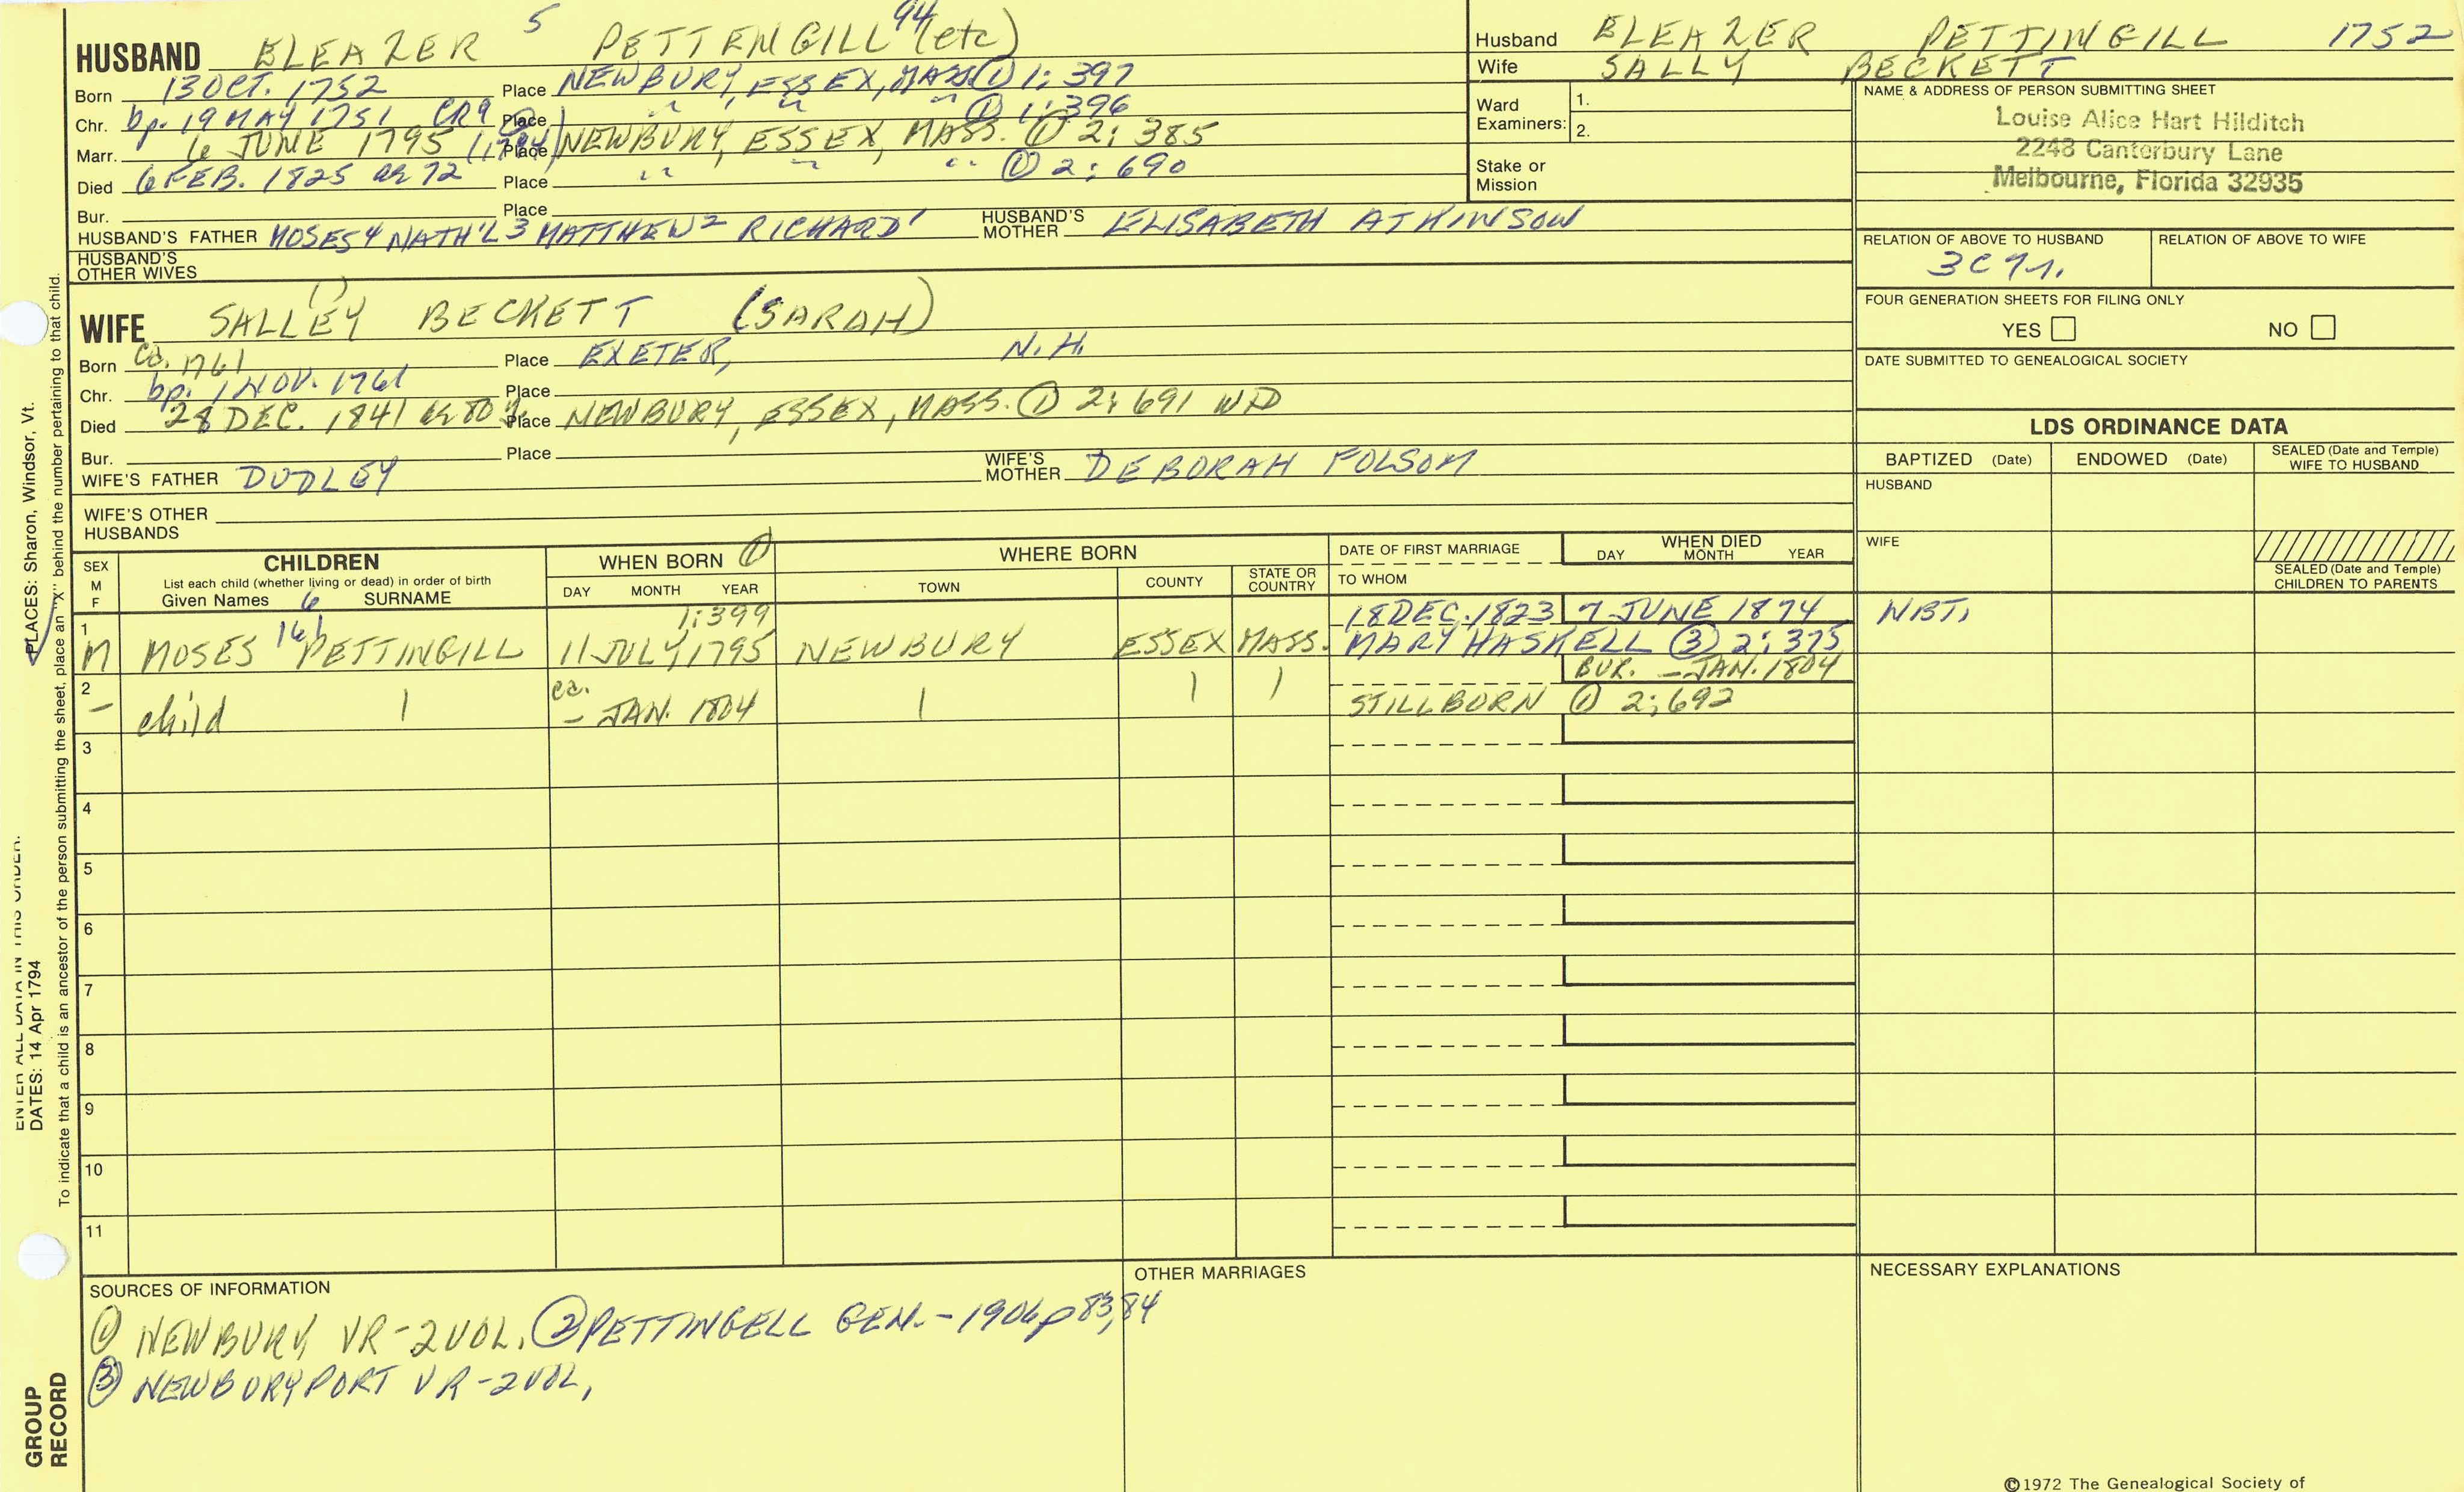 HUSBAND ELEAZER 5 PETTENGILL 94 (etc)
Born 13 OCT. 1752 Place NEWBURY, ESSEX, MASS. ① 1:397
Chr. bp. 19 MAY 1751 CR9 Place " " " ① 1:396
Marr. 6 JUNE 1795 Place NEWBURY, ESSEX, MASS. ① 2:385
Died 6 FEB. 1825 ae 72 Place " " " ① 2:690
Bur. Place
HUSBAND'S FATHER MOSES4 NATH'L3 MATTHEW2 RICHARD1 HUSBAND'S MOTHER ELISABETH ATKINSON
HUSBAND'S OTHER WIVES
WIFE SALLEY BECKETT (SARAH)
Born ca. 1761 Place EXETER, N.H.
Chr. bp. 1 NOV. 1761 Place
Died 28 DEC. 1841 ae 80 Place NEWBURY, ESSEX, MASS. ① 2:691 WD
Bur. Place
WIFE'S FATHER DUDLEY WIFE'S MOTHER DEBORAH FOLSOM
WIFE'S OTHER HUSBANDS
Husband ELEAZER PETTINGILL 1752
Wife SALLY BECKETT
Ward Examiners: 1.
2.
Stake or Mission
NAME & ADDRESS OF PERSON SUBMITTING SHEET
Louise Alice Hart Hilditch
2248 Canterbury Lane
Melbourne, Florida 32935
RELATION OF ABOVE TO HUSBAND RELATION OF ABOVE TO WIFE
3C
FOUR GENERATION SHEETS FOR FILING ONLY
YES NO
DATE SUBMITTED TO GENEALOGICAL SOCIETY
LDS ORDINANCE DATA
BAPTIZED (Date) ENDOWED (Date) SEALED (Date and Temple) WIFE TO HUSBAND
HUSBAND
WIFE
SEALED (Date and Temple) CHILDREN TO PARENTS
SEX M F CHILDREN WHEN BORN ① WHERE BORN DATE OF FIRST MARRIAGE WHEN DIED
List each child (whether living or dead) in order of birth
Given Names 6 SURNAME DAY MONTH YEAR TOWN COUNTY STATE OR COUNTRY TO WHOM DAY MONTH YEAR
1 1:399 18 DEC. 1823 7 JUNE 1874 NBT.
M MOSES 161 PETTINGILL 11 JULY, 1795 NEWBURY ESSEX MASS. MARY HASKELL ③ 2:375
2 ca. BUR. - JAN. 1804
- child | - JAN. 1804 | | | STILLBORN ① 2:692
3
4
5
6
7
8
9
10
11
SOURCES OF INFORMATION
① NEWBURY VR-2VOL. ② PETTINGELL GEN.-1906 p 83,84
③ NEWBURYPORT VR-2VOL,
OTHER MARRIAGES
NECESSARY EXPLANATIONS
©1972 The Genealogical Society of
PLACES: Sharon, Windsor, Vt.
ENTER ALL DATA IN THIS ORDER.
DATES: 14 Apr 1794
To indicate that a child is an ancestor of the person submitting the sheet, place an "X" behind the number pertaining to that child.
GROUP
RECORD